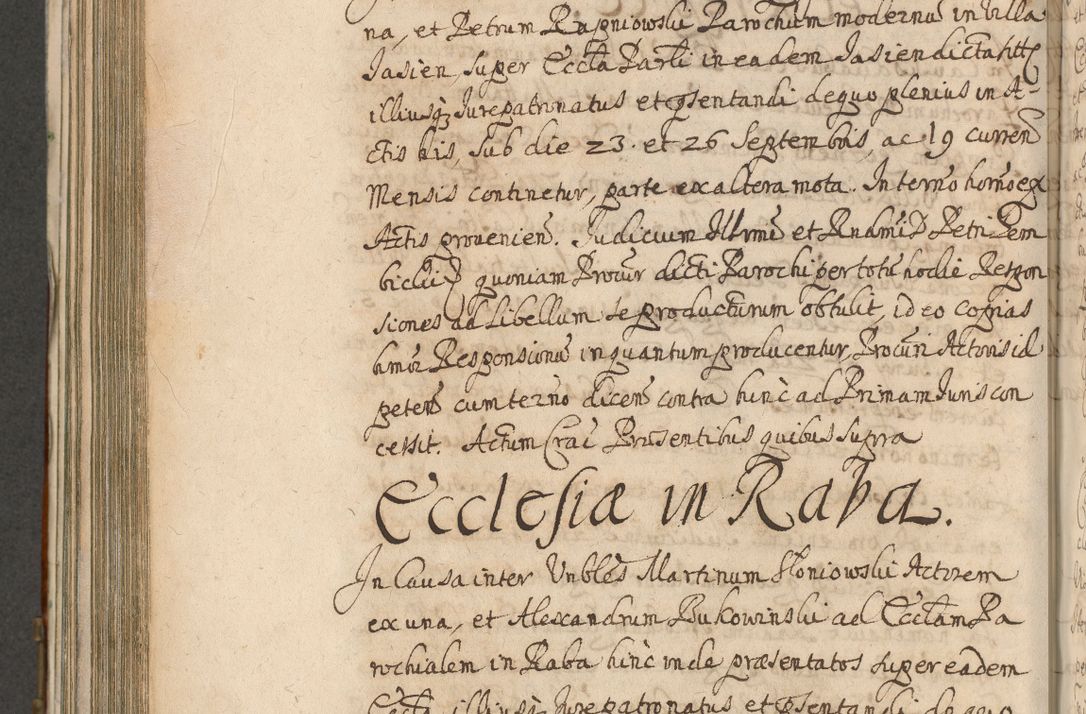 na, et Petrum Rapniowski Parochum modernũ in Villa
Jasien, super Eccła Parłi in eadem Jasien dicta
illiusq; Jurepatronatus et pñsentandi de quo plenius in A-
ctis his, sub die 23. et 26 Septembris, ac 19 curren
Mensis continetur, parte ex altera mota. In termõ horño ex
Actis provenieñ. Judicium Illrmi et Rndmi D Petri Gem
bicki D quoniam Procur dicti Parochi per totũ hodie Respon
siones ad Libellum se producturum obtulit, ideo copias
hmõi Responsionũ inquantum producentur, Procuri Actoris id
peteñ cum termõ diceñ contra hinc ad Primam Juris con
cessit. Actum Crac Prnsentibus quibus supra
Ecclesiæ in Raba.
In Causa inter Vnbles Martinum Słoniowski Actorem
ex una, et Alexandrum Bukowinski ad Ecclam Pa
rochialem in Raba hinc inde præsentatos super eadem
Eccła, illiusq; Jurepatronatus et pñsentandi de quo